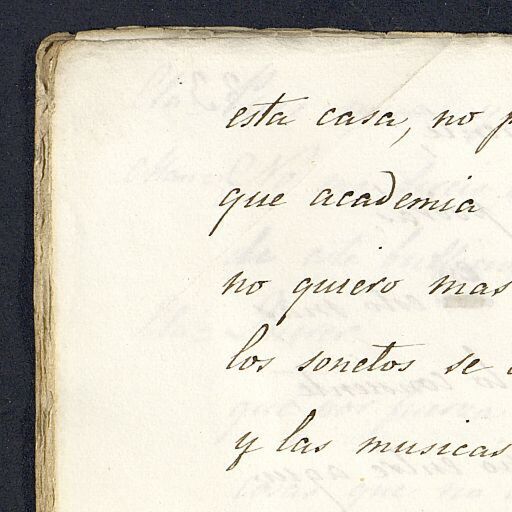 esta casa, no p
que academia
no quiero mas
los sonetos se
y las musicas